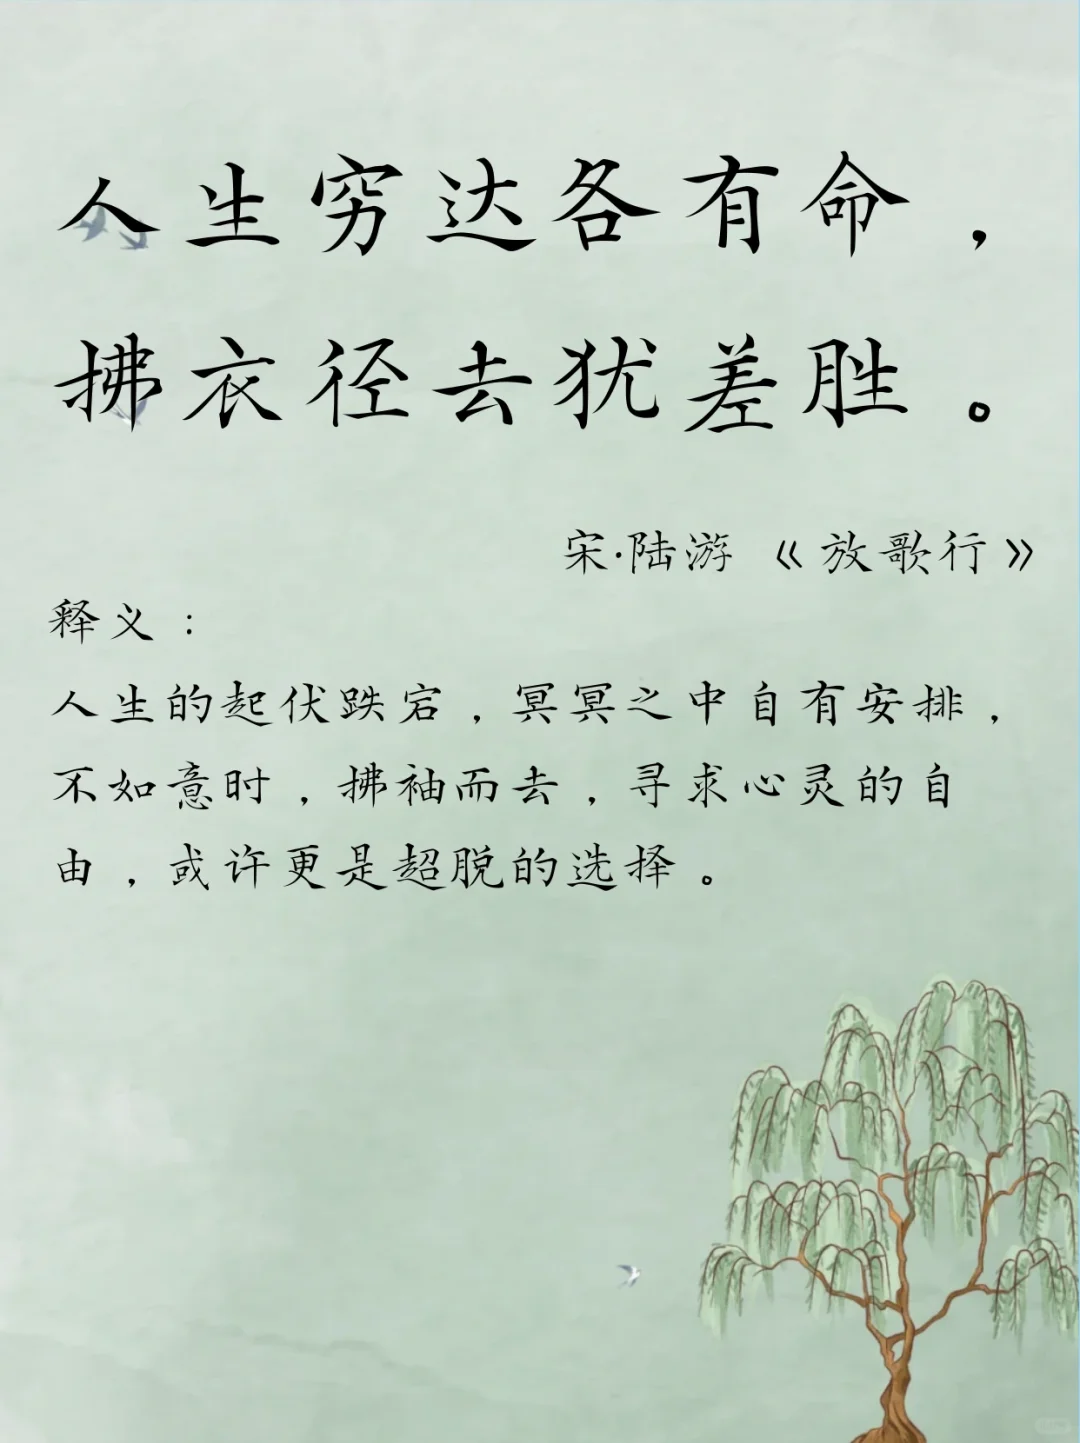 人生穷达各有命，
拂衣径去犹差胜。
宋·陆游《放歌行》
释义：
人生的起伏跌宕，冥冥之中自有安排，
不如意时，拂袖而去，寻求心灵的自
由，或许更是超脱的选择。